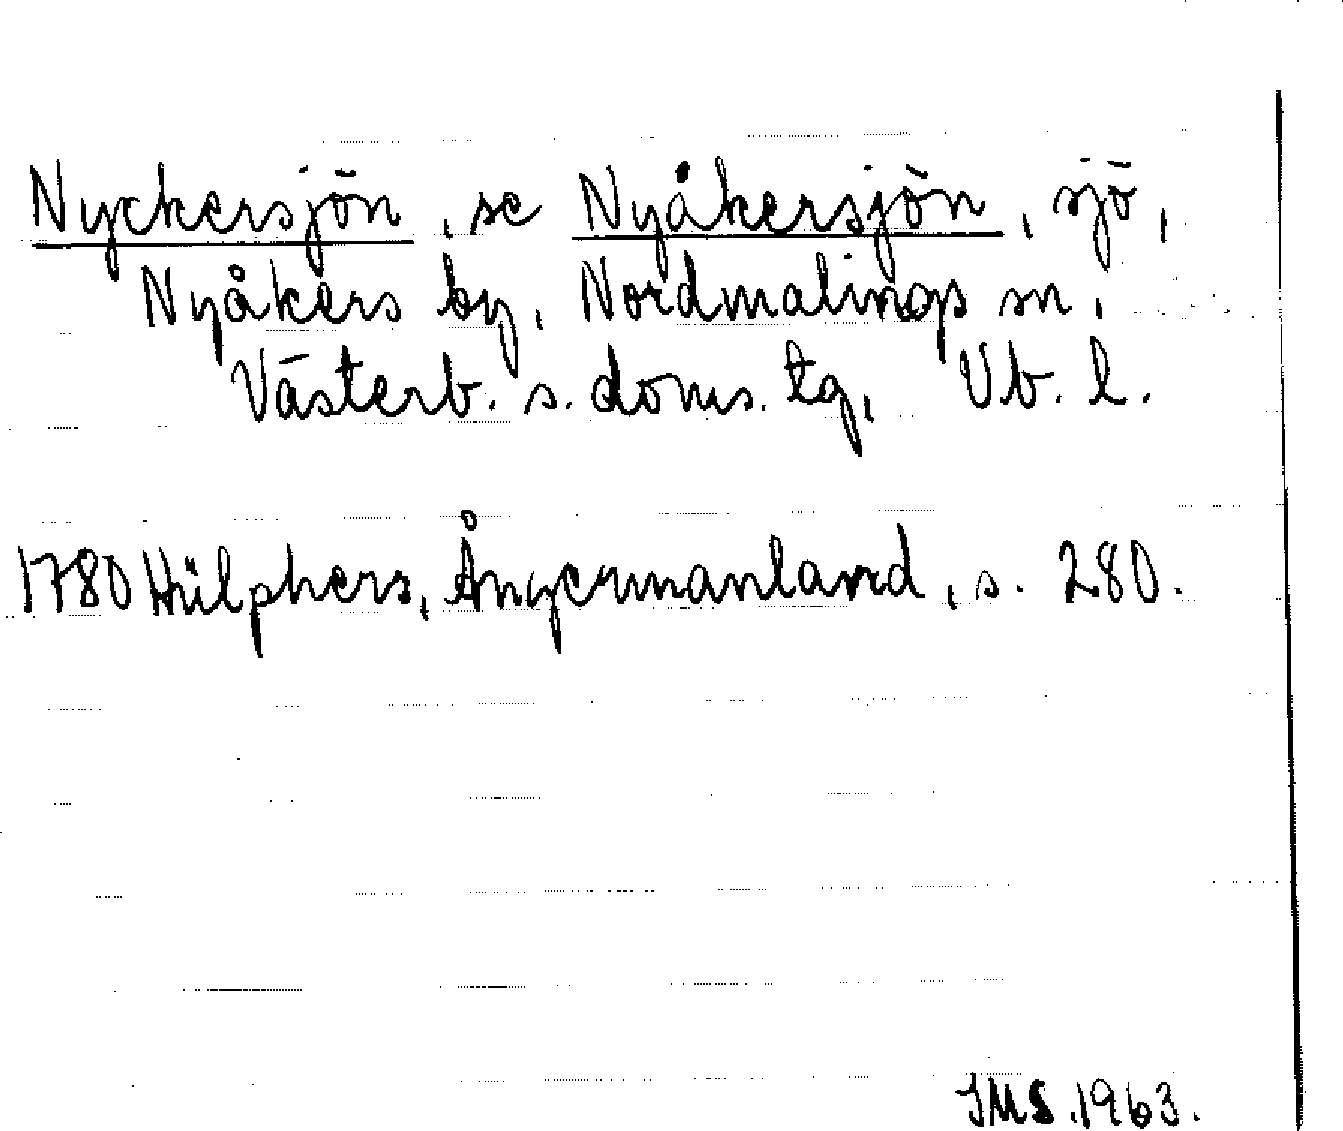 Nyckersjön, se Nyåkersjön, sjö,
Nyåkers by, Nordmalings sn,
Västerb. s. doms. tg, Vb. l.
1780 Hülphers, Ångermanland, s. 280.
IMS. 1963.